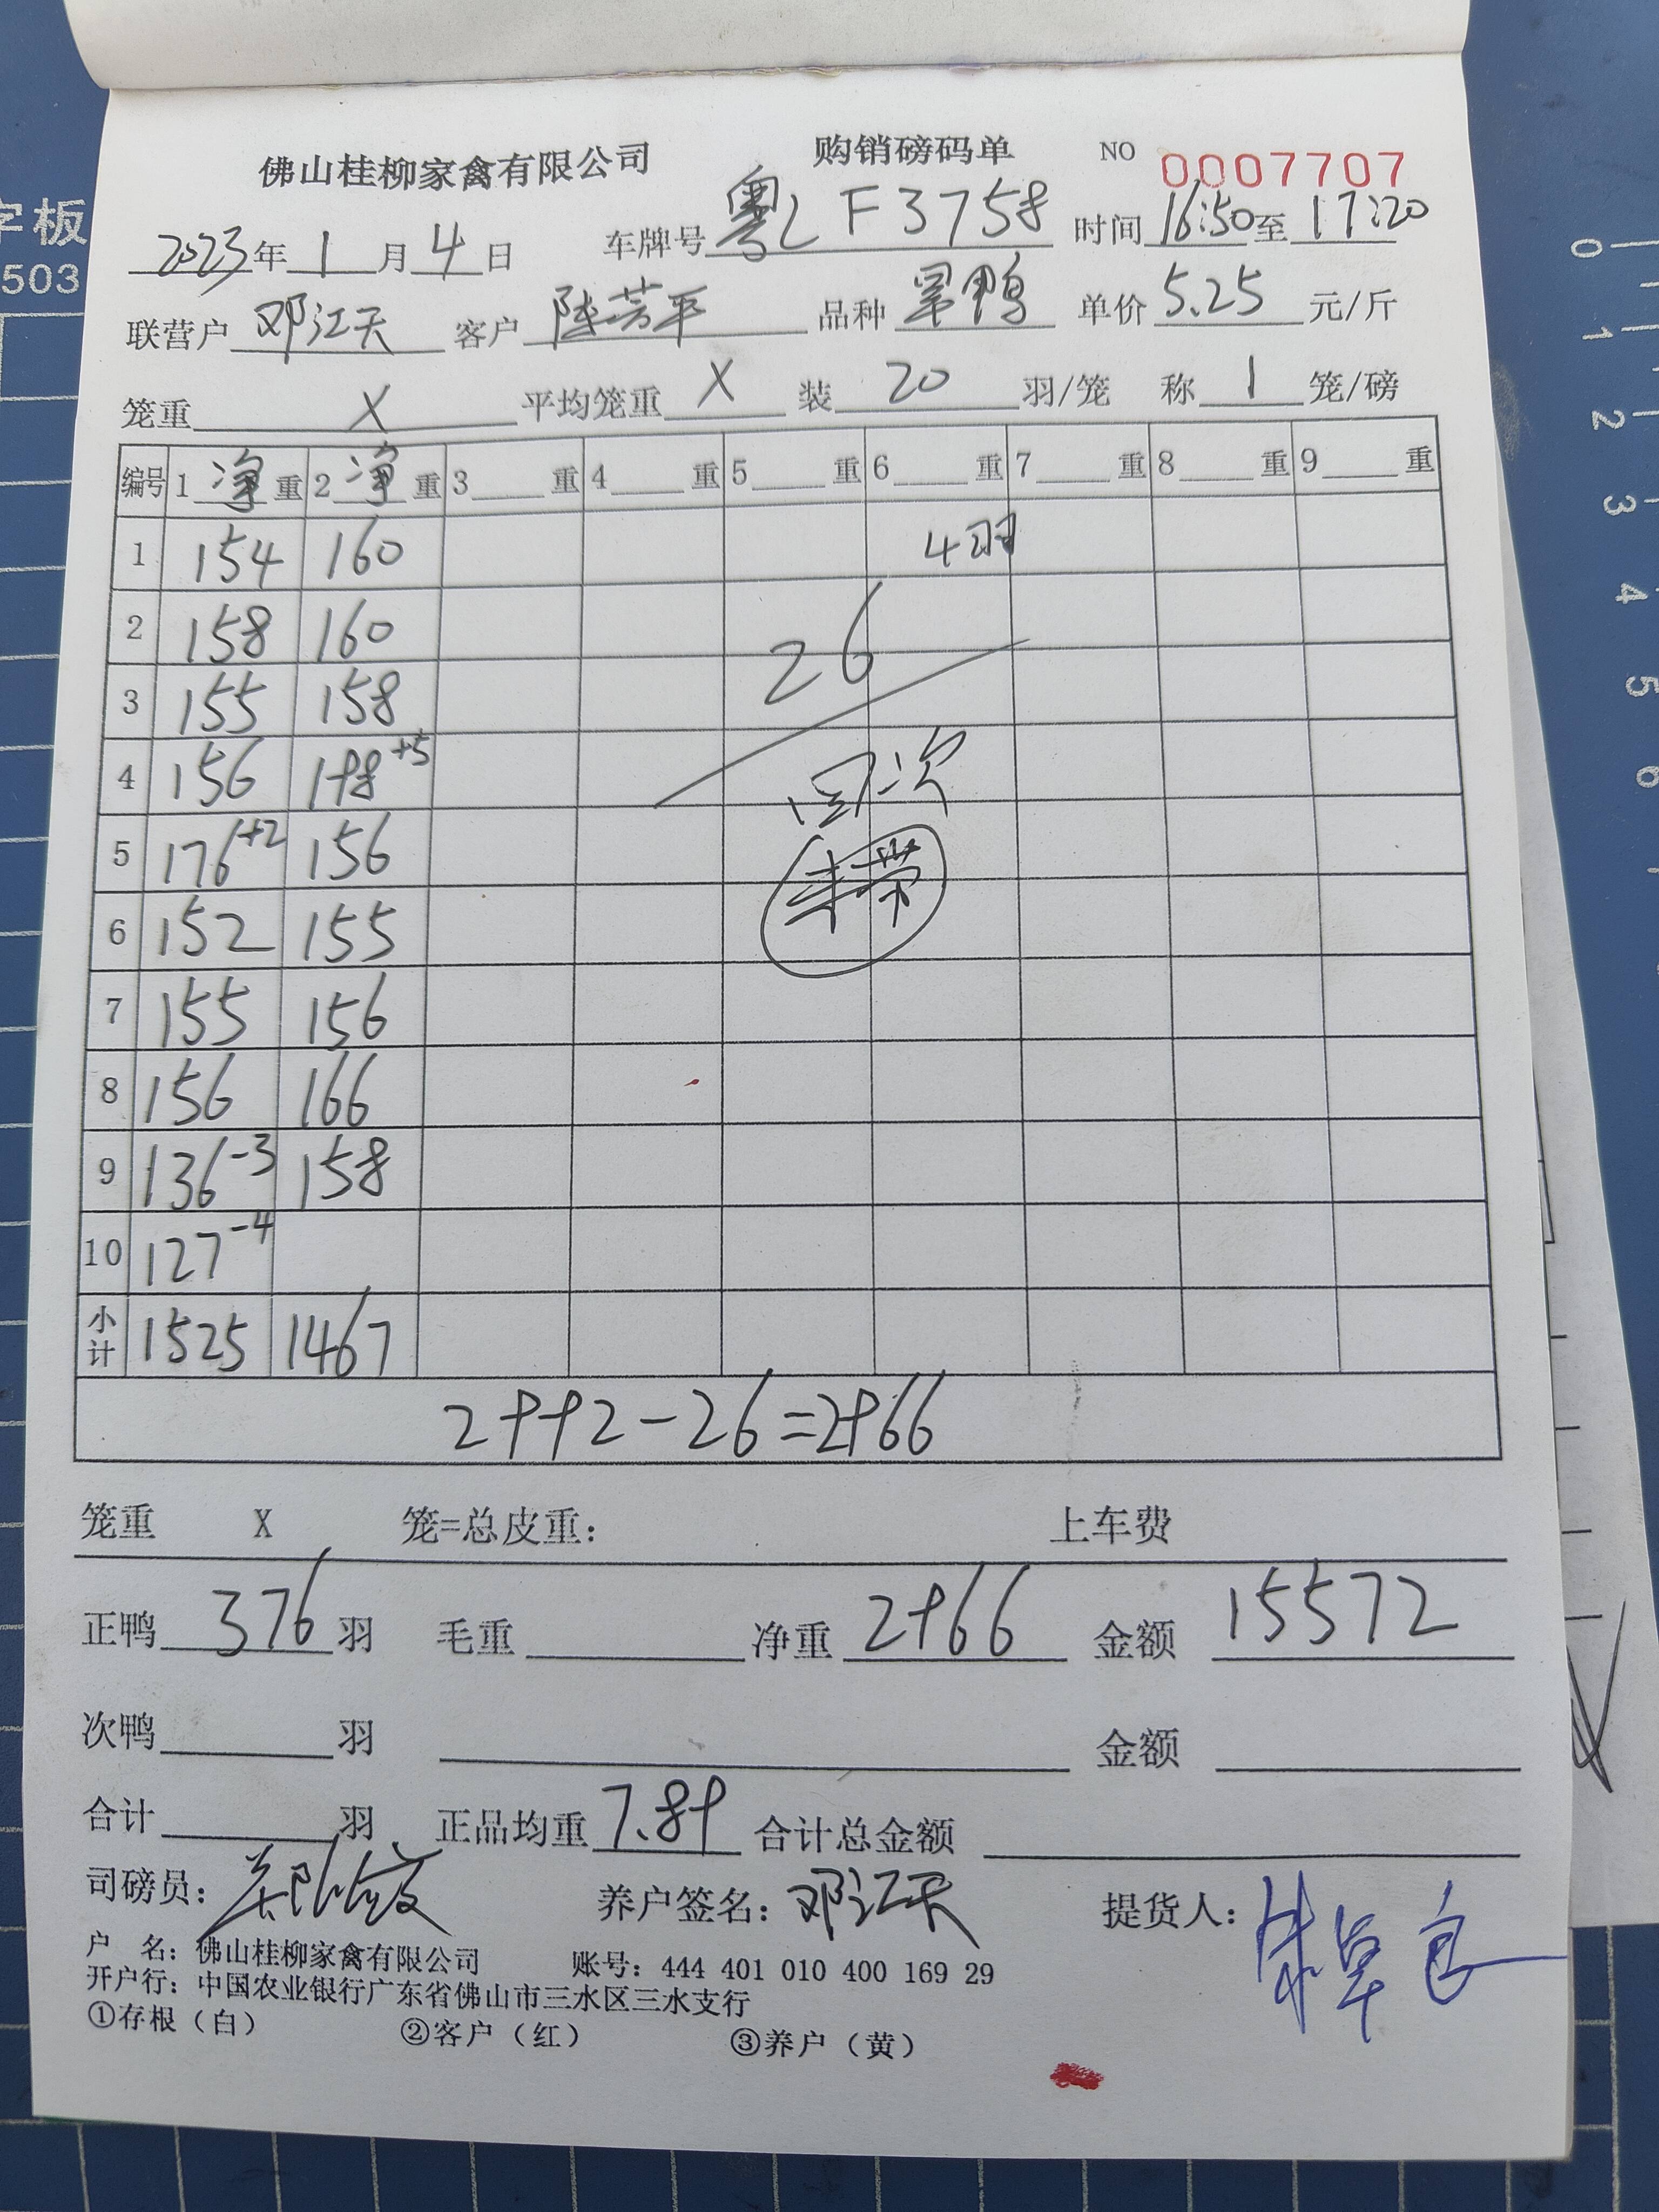 字板
503
佛山桂柳家禽有限公司 购销磅码单 NO 0007707
2023年1月4日 车牌号粤L F3758 时间16:50至17:20
联营户邓江天 客户陈芳平 品种旱鸭 单价5.25元/斤
笼重X 平均笼重X 装20羽/笼 称1笼/磅
编号 1净重 2净重 3___重 4___重 5___重 6___重 7___重 8___重 9___重
1 154 160 4羽
2 158 160 26
3 155 158
4 156 198+5
5 176+2 156
6 152 155
7 155 156
8 156 166
9 136-3 158
10 127-4
小计 1525 1467
2992-26=2966
笼重 X 笼=总皮重: 上车费
正鸭376羽 毛重 净重2966 金额15572
次鸭___羽 金额
合计___羽 正品均重7.89 合计总金额
司磅员: 养户签名:邓江天 提货人:
户 名:佛山桂柳家禽有限公司 账号:444 401 010 400 169 29
开户行:中国农业银行广东省佛山市三水区三水支行
①存根(白) ②客户(红) ③养户(黄)
0
1
2
3
4
5
6